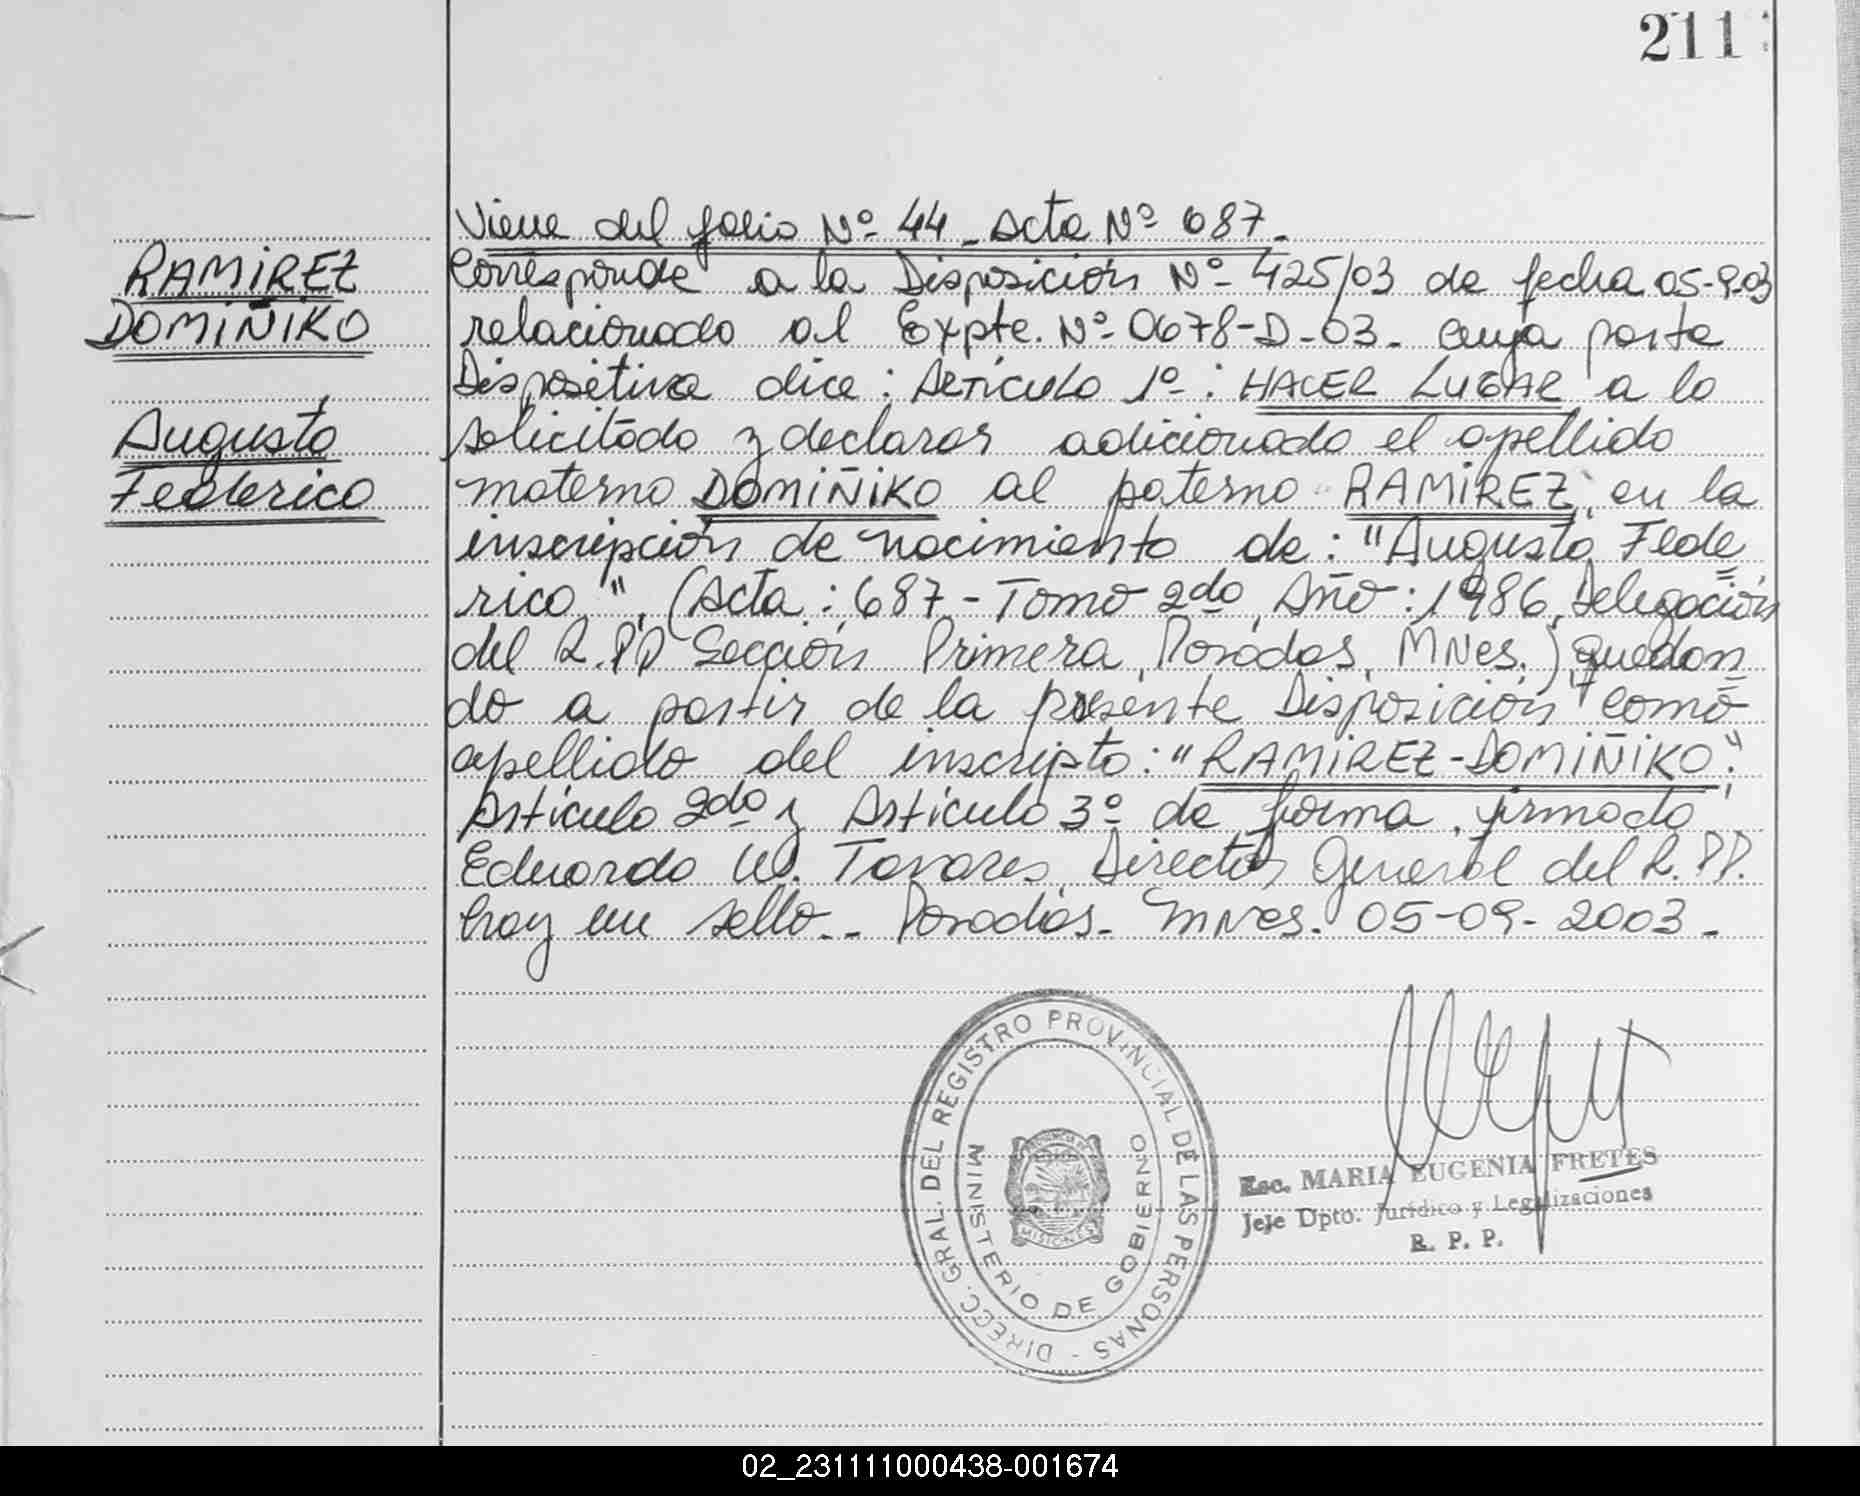 211
RAMIREZ
DOMIÑIKO
Augusto
Federico
Viene del folio Nº 44 - Acta Nº 687.-
Corresponde a la Disposición Nº 425/03 de fecha 05-9-03
relacionado al Expte. Nº 0678-D-03. cuya parte
Dispositiva dice: Artículo 1º: HACER LUGAR a lo
solicitado y declarar adicionado el apellido
materno DOMIÑIKO al paterno RAMIREZ, en la
inscripción de nacimiento de: "Augusto Fede=
rico", (Acta: 687 - Tomo 2do, Año: 1986, Delegación
del R.PP Sección Primera, Posadas, MNes.) quedan=
do a partir de la presente Disposición como
apellido del inscripto: "RAMIREZ-DOMIÑIKO".
Artículo 2do y Artículo 3º de forma, firmado
Eduardo W. Tavares, Director General del R.PP.
hay un sello.- Posadas. MNes. 05-09-2003.-
DIRECC. GRAL. DEL REGISTRO PROVINCIAL DE LAS PERSONAS -
MINISTERIO DE GOBIERNO
PROVINCIA DE
MISIONES
Esc. MARIA EUGENIA FRETES
Jefe Dpto. Jurídico y Legalizaciones
R. P. P.
02_231111000438-001674